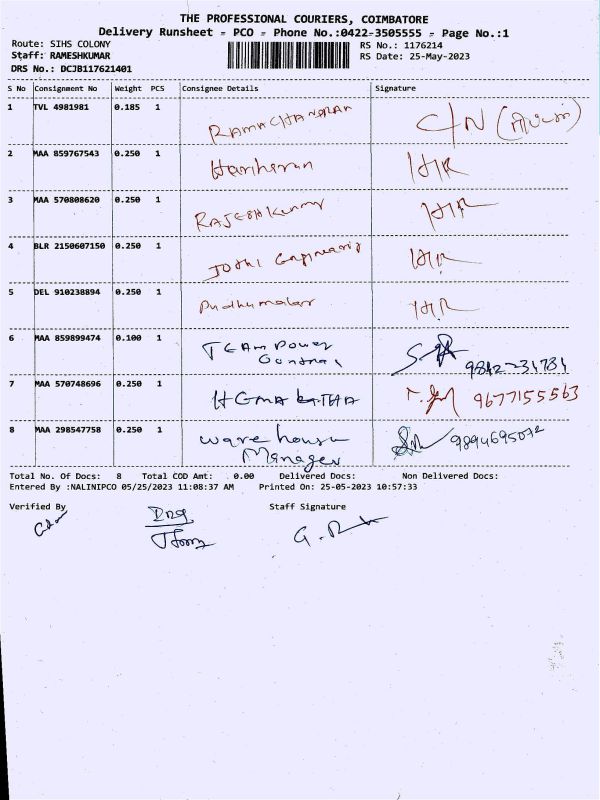 THE PROFESSIONAL COURIERS, COIMBATORE
Delivery Runsheet = PCO = Phone No.:0422-3505555 = Page No.:1
Route: SIHS COLONY RS No.: 1176214
Staff: RAMESHKUMAR RS Date: 25-May-2023
DRS No.: DCJB117621401
S No Consignment No Weight PCS Consignee Details Signature
1 TVL 4981981 0.185 1 RAMACHANDRAN C/N
2 MAA 859767543 0.250 1 Hariharan
3 MAA 570808620 0.250 1 RAJESHKumar
4 BLR 2150607150 0.250 1 JOTHI Engineering
5 DEL 910238894 0.250 1 Pudhumalar
6 MAA 859899474 0.100 1 TEAM Power
Control 9842231781
7 MAA 570748696 0.250 1 HEMALATHA 9677155563
8 MAA 298547758 0.250 1 warehouse
Manager 9894695072
Total No. Of Docs: 8 Total COD Amt: 0.00 Delivered Docs: Non Delivered Docs:
Entered By :NALINIPCO 05/25/2023 11:08:37 AM Printed On: 25-05-2023 10:57:33
Verified By Staff Signature